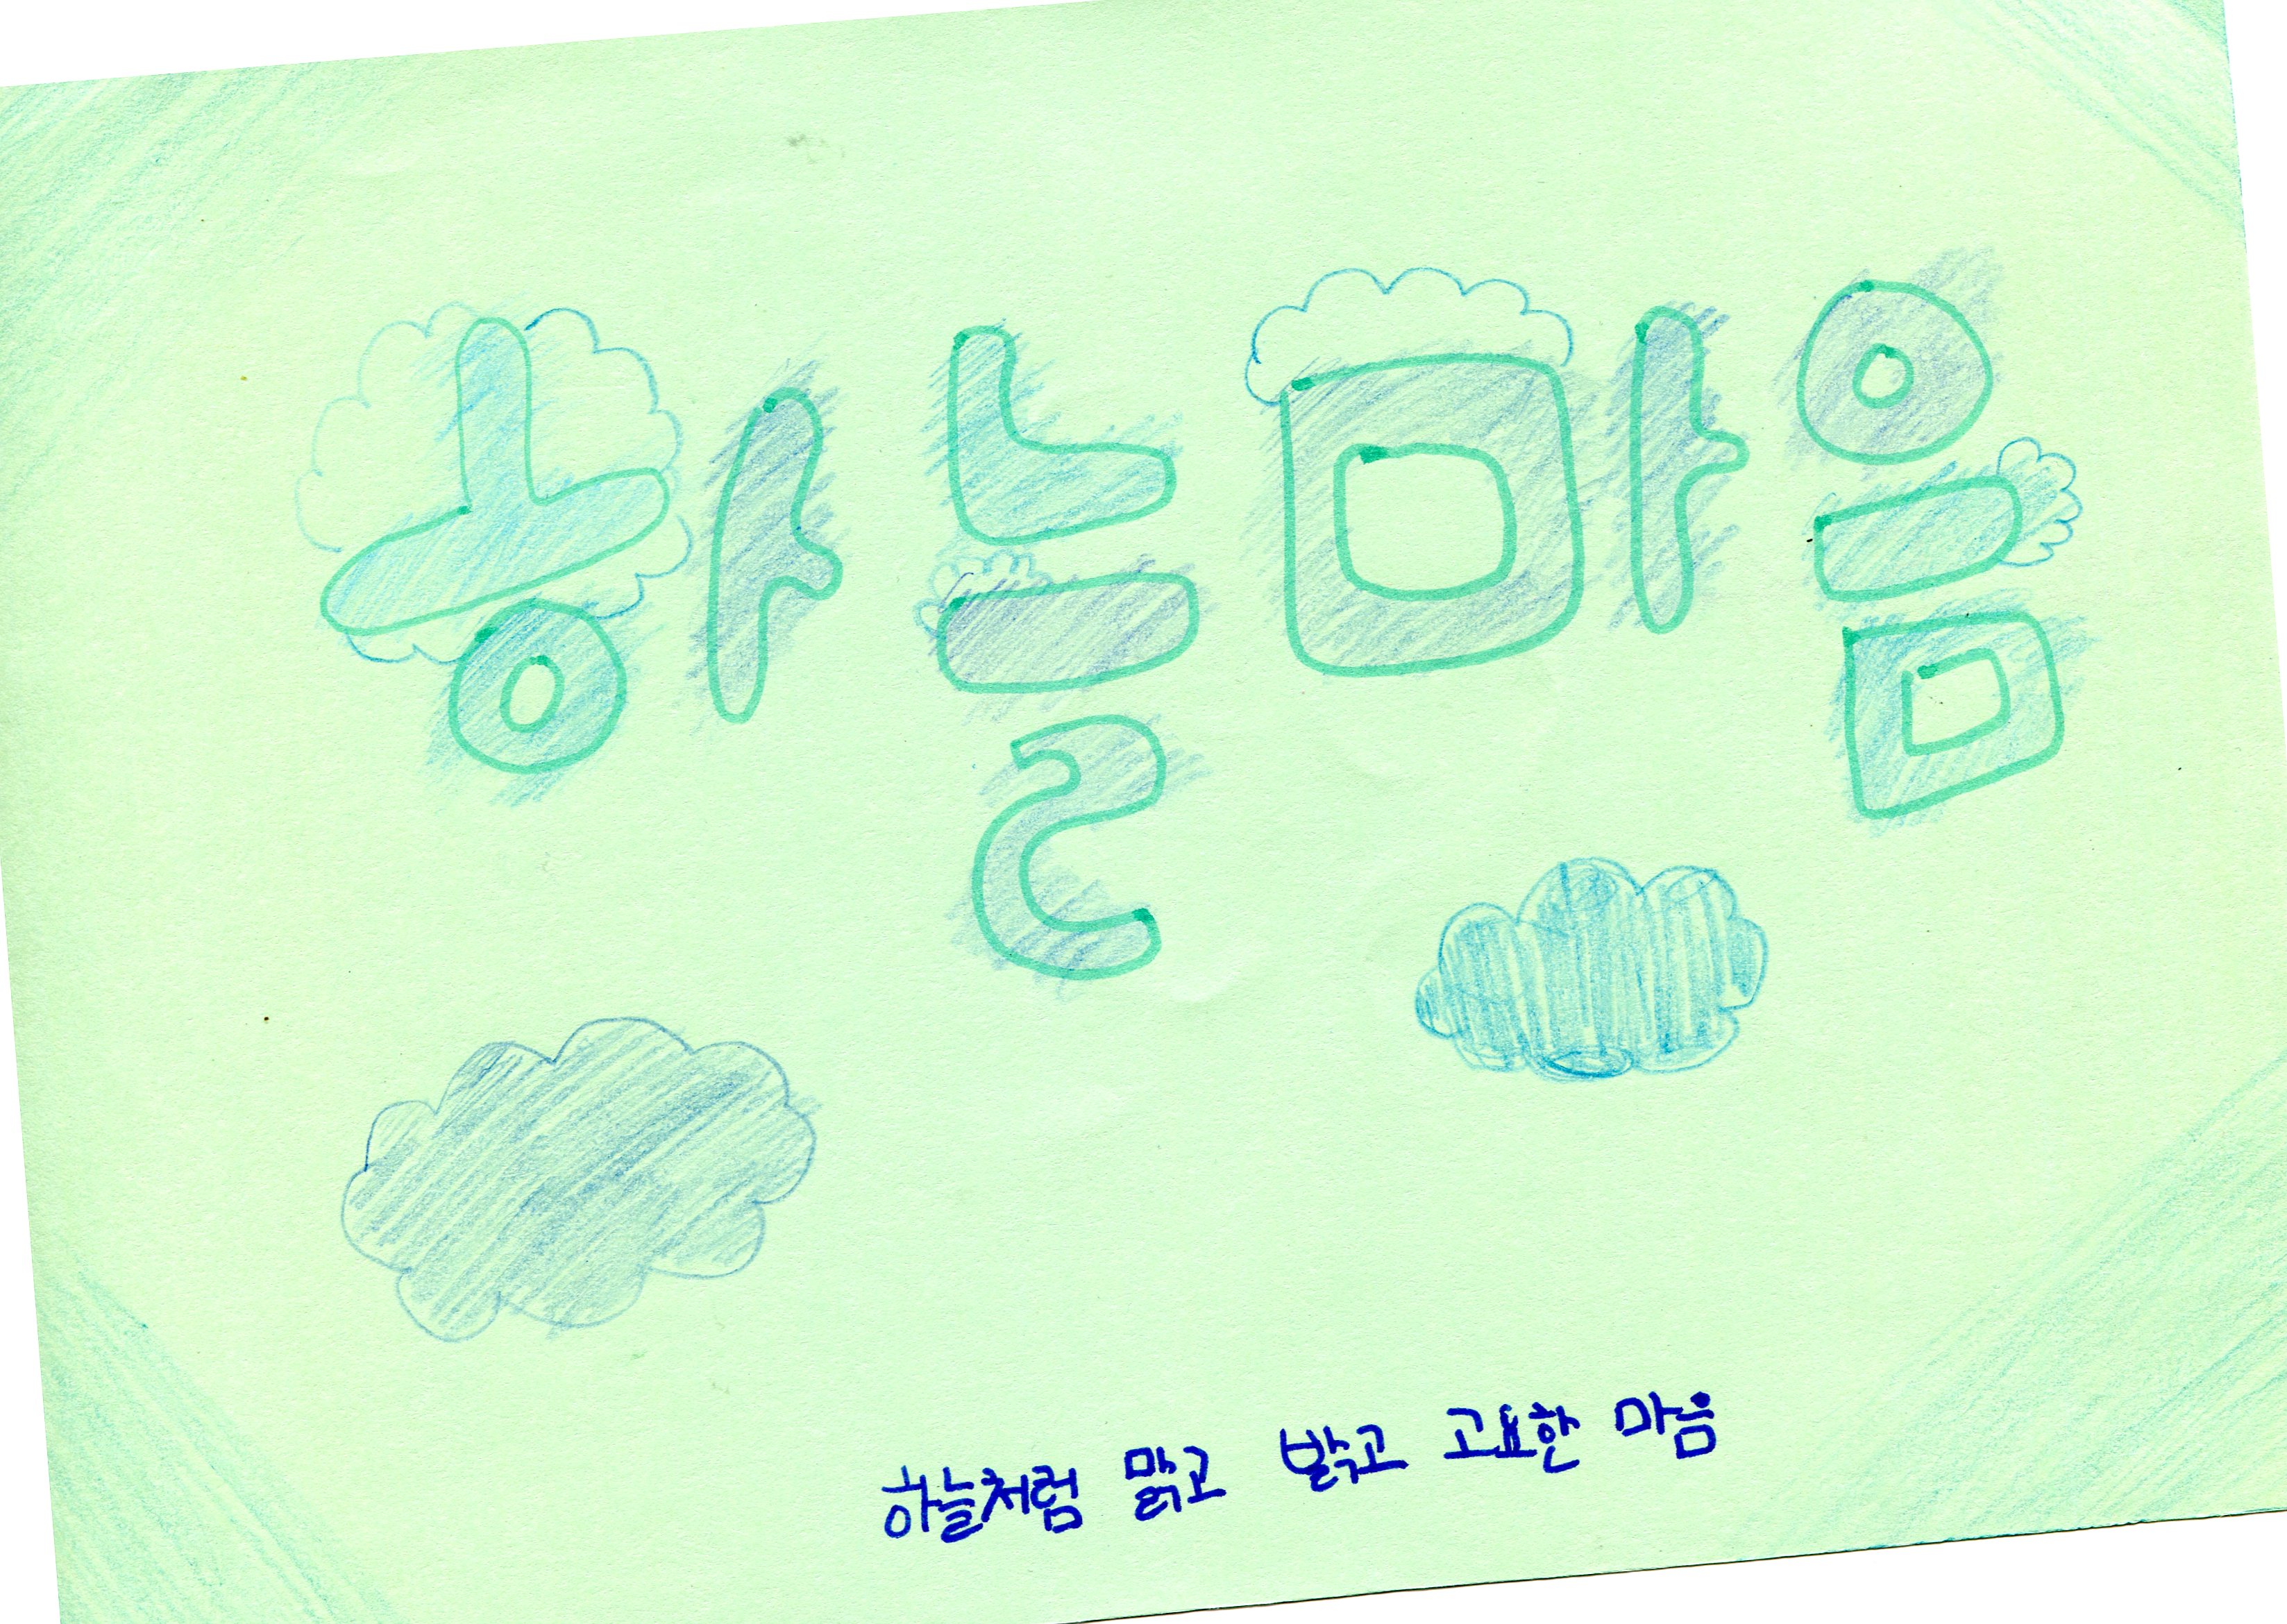 하늘마음
하늘처럼 맑고 밝고 고요한 마음